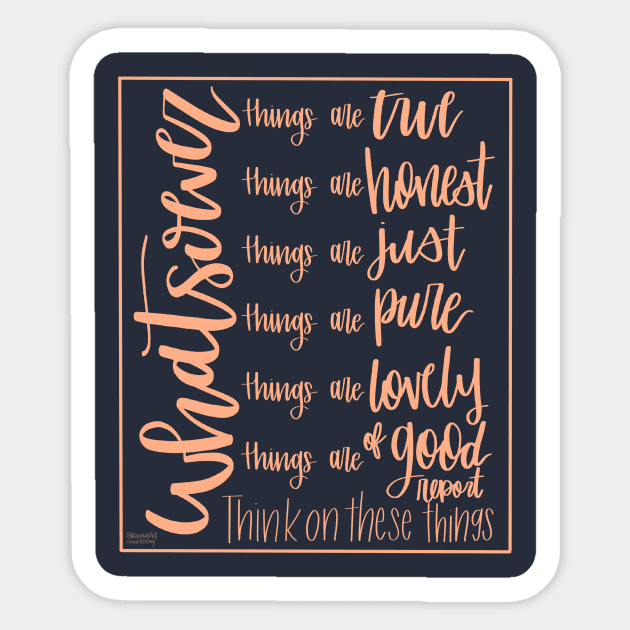 Whatsoever
things are true
things are honest
things are just
things are pure
things are lovely
things are of good
report
Think on these things
Hannah's